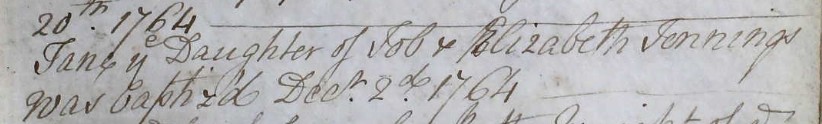 20th. 1764
Jane ye Daughter of Job & Elizabeth Jennings
was baptizd Decr. 2d. 1764